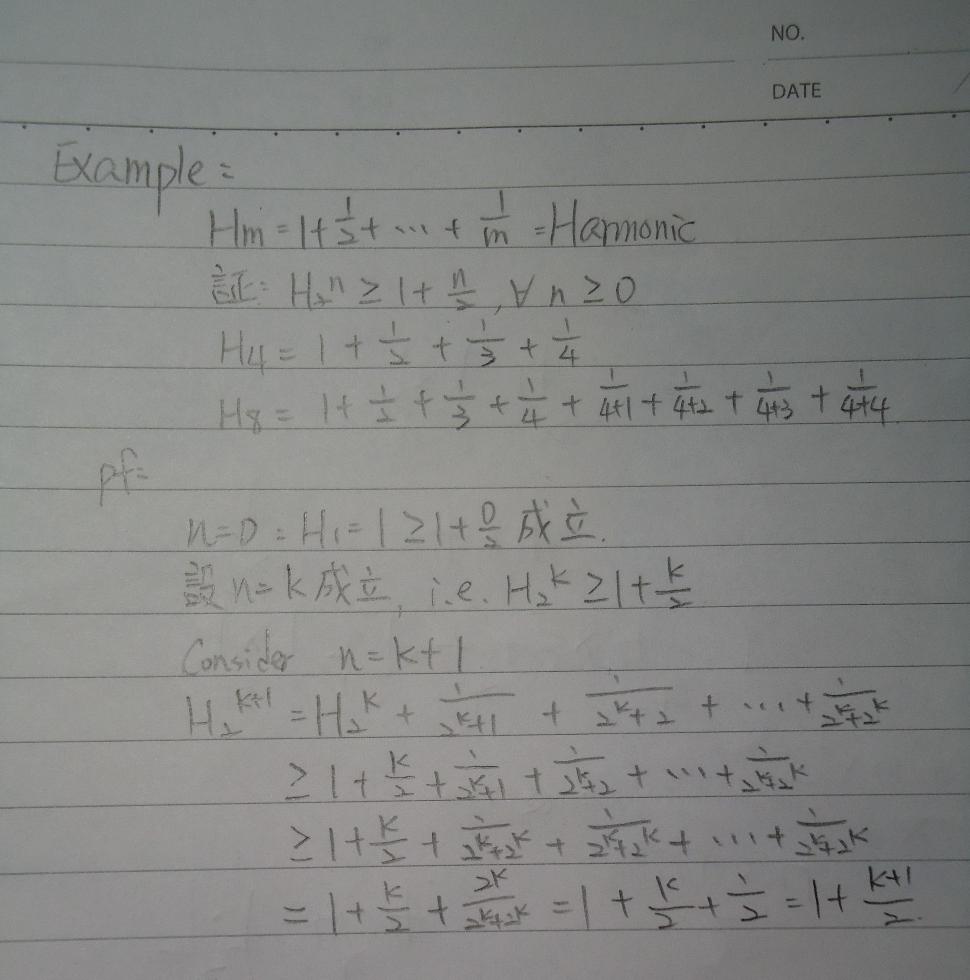 NO.
DATE
Example:
Hm = 1 + 1/2 + ... + 1/m = Harmonic
証: H₂ⁿ ≥ 1 + n/2, ∀ n ≥ 0
H4 = 1 + 1/2 + 1/3 + 1/4
H8 = 1 + 1/2 + 1/3 + 1/4 + 1/(4+1) + 1/(4+2) + 1/(4+3) + 1/(4+4)
pf:
n=0: H₁ = 1 ≥ 1 + 0/2 成立.
設 n=k 成立, i.e. H₂ᵏ ≥ 1 + k/2
Consider n=k+1
H₂ᵏ⁺¹ = H₂ᵏ + 1/(2ᵏ+1) + 1/(2ᵏ+2) + ... + 1/(2ᵏ+2ᵏ)
≥ 1 + k/2 + 1/(2ᵏ+1) + 1/(2ᵏ+2) + ... + 1/(2ᵏ+2ᵏ)
≥ 1 + k/2 + 1/(2ᵏ+2ᵏ) + 1/(2ᵏ+2ᵏ) + ... + 1/(2ᵏ+2ᵏ)
= 1 + k/2 + 2ᵏ/(2ᵏ+2ᵏ) = 1 + k/2 + 1/2 = 1 + (k+1)/2.